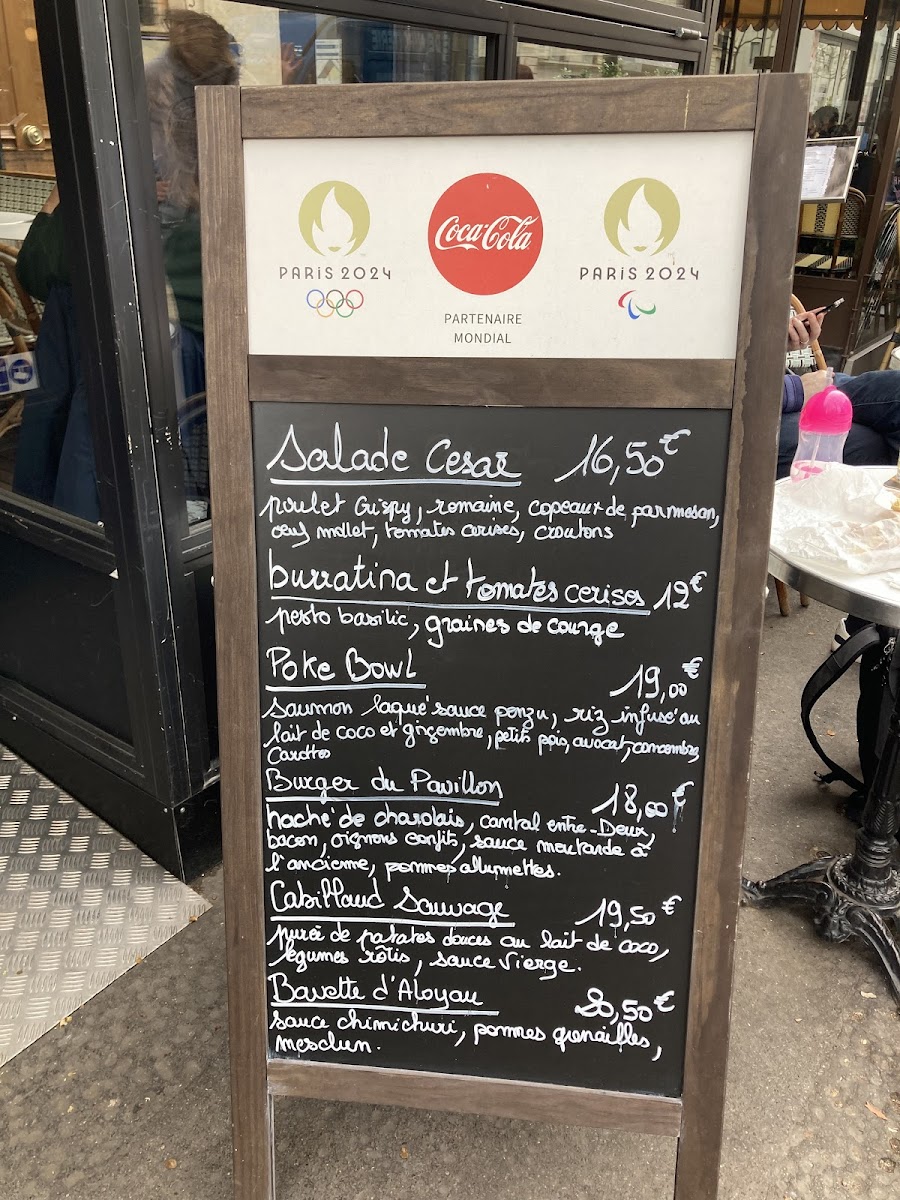 PARIS 2024
Coca-Cola
PARIS 2024
PARTENAIRE
MONDIAL
Salade Cesar 16,50€
poulet Crispy, romaine, copeaux de parmesan,
œuf mollet, tomates cerises, croutons
burratina et tomates cerises 12€
pesto basilic, graines de courge
Poke Bowl 19,00€
saumon laqué sauce ponzu, riz infusé au
lait de coco et gingembre, petits pois, avocat, concombre,
Carottes
Burger du Pavillon 18,00€
haché de charolais, cantal entre-Deux,
bacon, oignons confits, sauce moutarde à
l'ancienne, pommes allumettes.
Cabillaud Sauvage 19,50€
purée de patates douces au lait de coco,
légumes rôtis, sauce Vierge.
Bavette d'Aloyau 20,50€
sauce chimichuri, pommes grenailles,
mesclun.